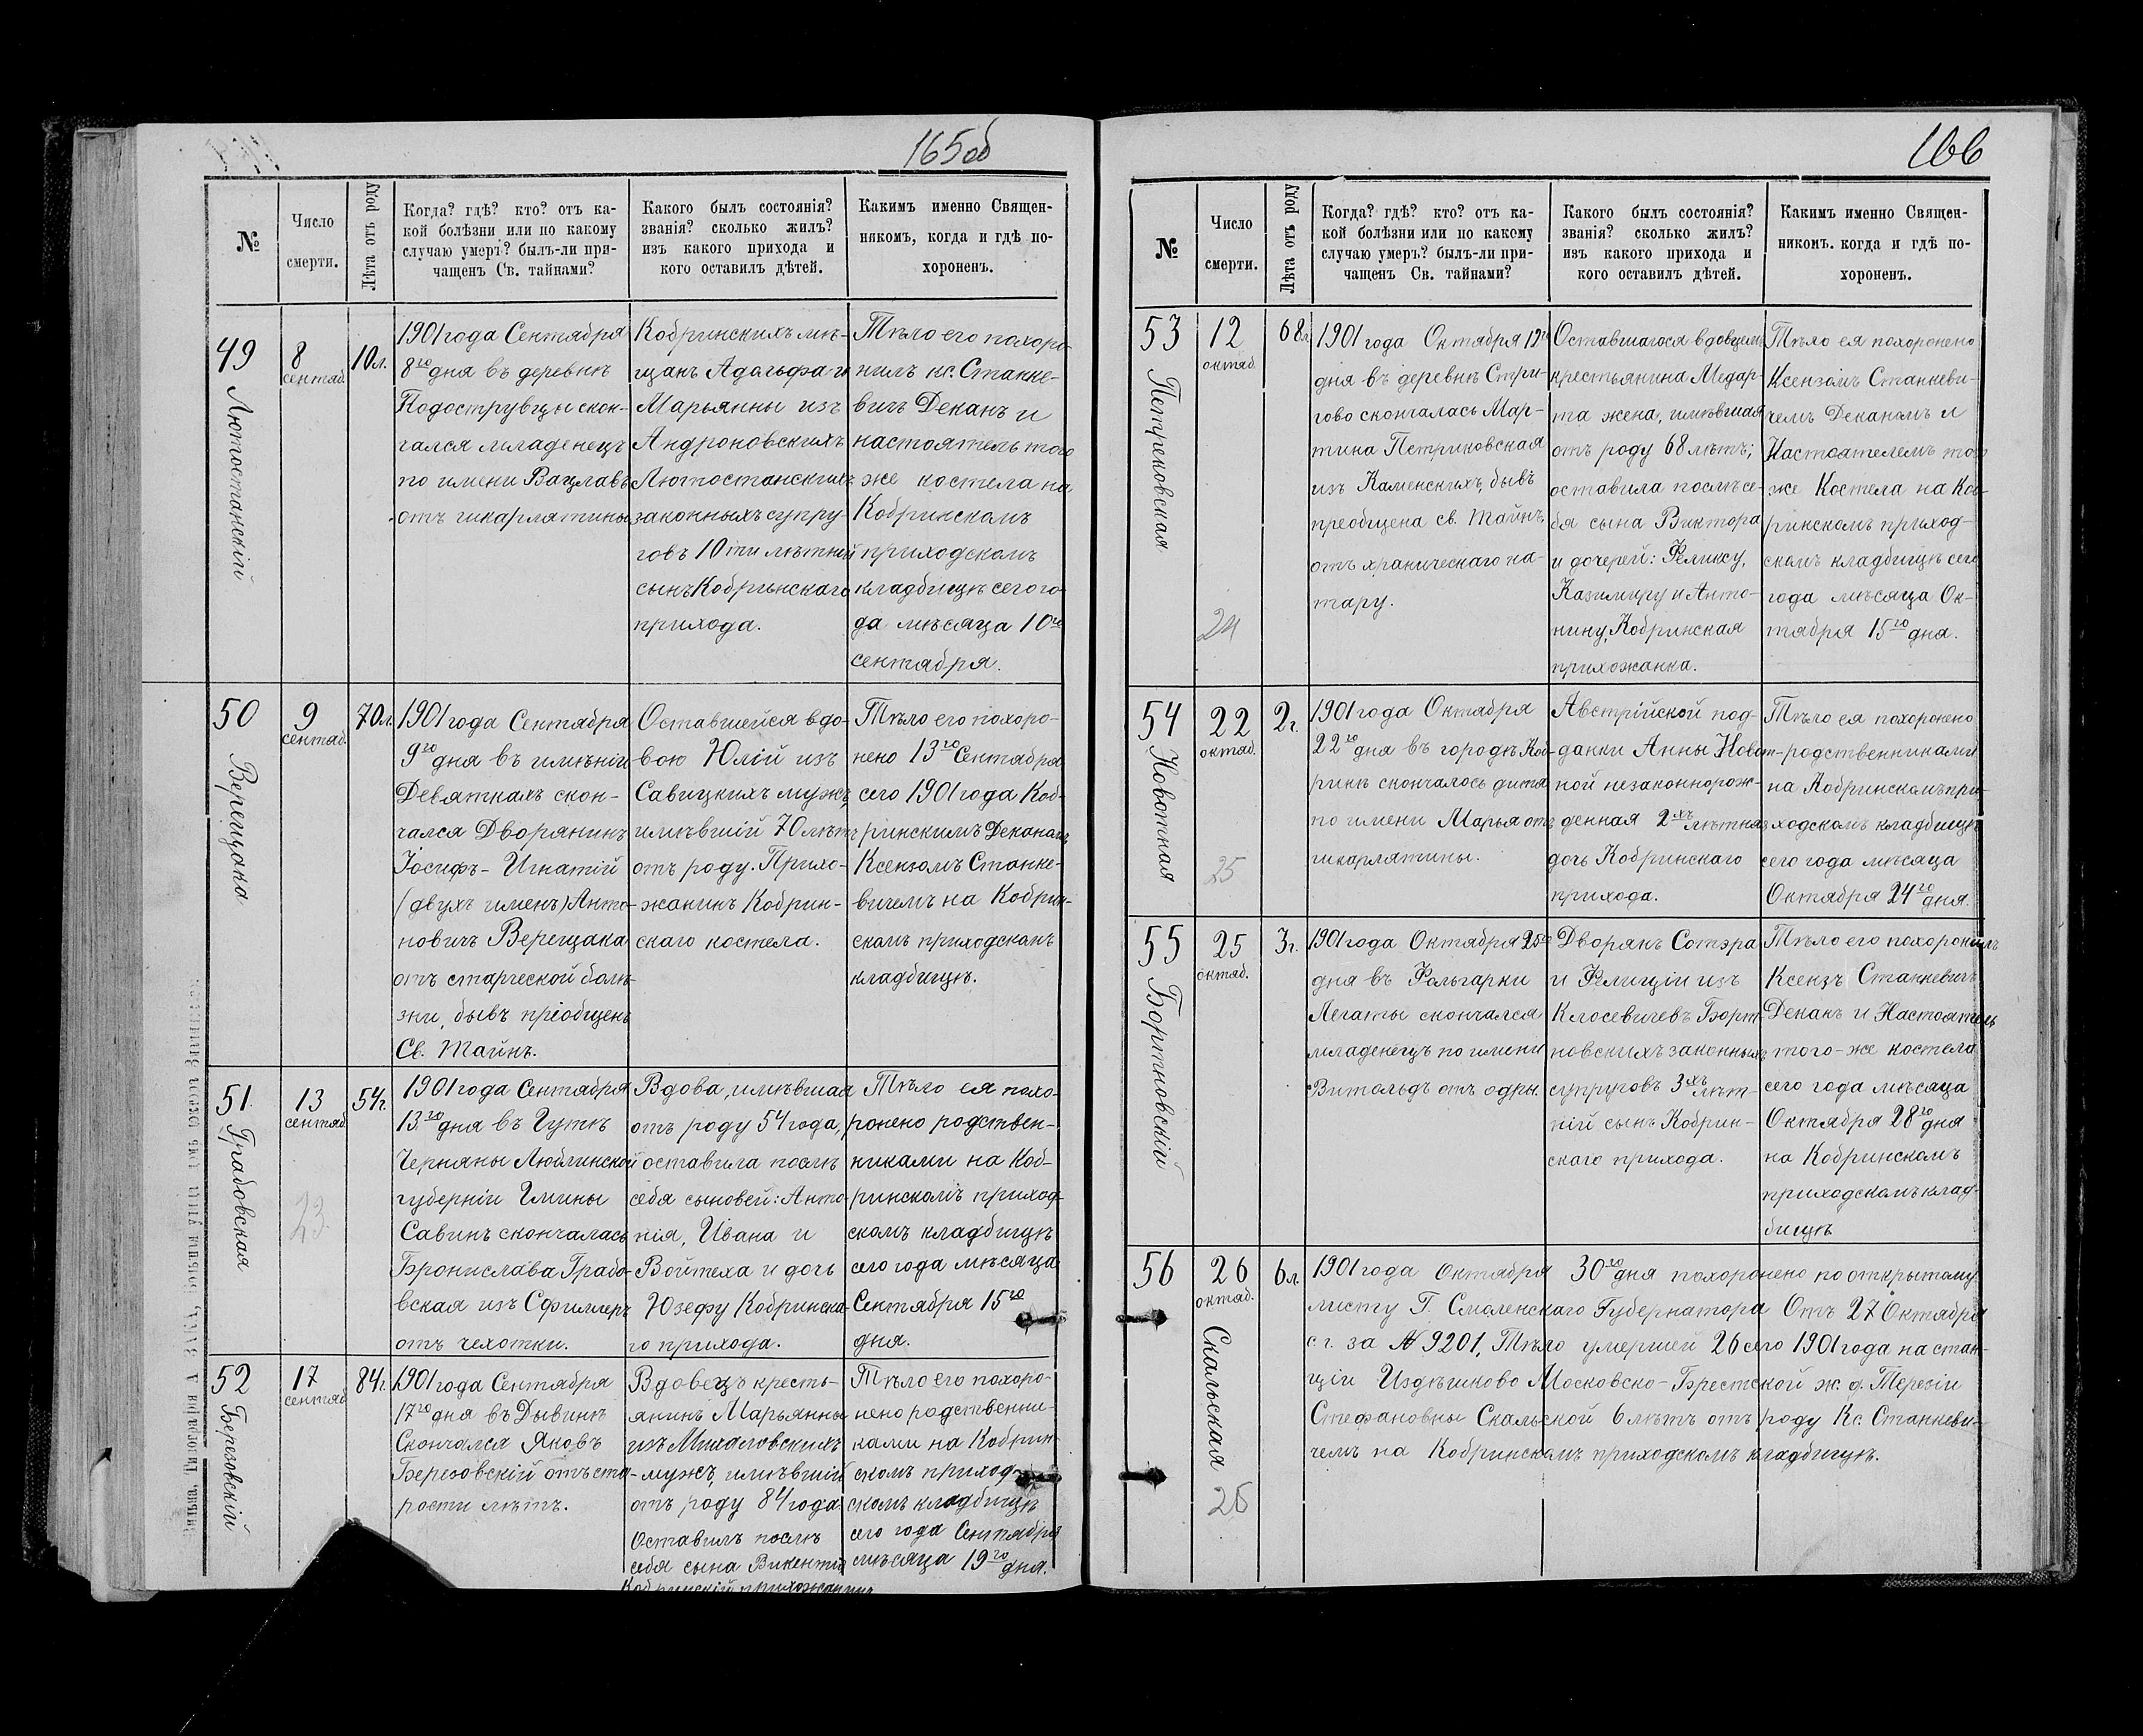 165 об
№
Число
смерти.
Лѣта отъ роду
Когда? гдѣ? кто? отъ ка-
кой болѣзни или по какому
случаю умеръ? былъ-ли при-
чащенъ Св. тайнами?
Какого былъ состоянія?
званія? сколько жилъ?
изъ какого прихода и
кого оставилъ дѣтей.
Какимъ именно Священ-
никомъ, когда и гдѣ по-
хороненъ.
49
Лютостанскій
8
сентяб.
10 л.
1901 года Сентября
8го дня въ деревнѣ
Подострувцы скон-
чался младенецъ
по имени Вацлавъ
отъ шкарлятины
Кобринскихъ мѣ-
щанъ Адольфа и
Марьянны изъ
Андроновскихъ
Лютостанскихъ
законныхъ супру-
говъ 10ти лѣтній
сынъ Кобринскаго
прихода.
Тѣло его похоро-
нилъ кс. Станке-
вичъ Деканъ и
настоятель того
же костела на
Кобринскомъ
приходскомъ
кладбищѣ сего го-
да мѣсяца 10го
сентября.
50
Верещака
9
сентяб.
70 л.
1901 года Сентября
9го дня въ имѣніи
Девяткахъ скон-
чался Дворянинъ
Іосифъ-Игнатій
(двухъ именъ) Анто-
новичъ Верещака
отъ старческой болѣ-
зни, бывъ пріобщенъ
Св. Тайнъ.
Оставшейся вдо-
вою Юлій изъ
Савицкихъ мужъ
имѣвшій 70 лѣтъ
отъ роду. Прихо-
жанинъ Кобрин-
скаго костела.
Тѣло его похоро-
нено 13го Сентября
сего 1901 года Коб-
ринскимъ Деканомъ
Ксензомъ Станке-
вичемъ на Кобрин-
скомъ приходскомъ
кладбищѣ.
51
Грабовская
13
сентяб.
23
54 г.
1901 года Сентября
13го дня въ Гутѣ
Черняны Люблинской
губерніи Гмины
Савинъ скончалась
Бронислава Грабо-
вская изъ Сфиллеръ
отъ чехотки.
Вдова, имѣвшая
отъ роду 54 года,
оставила послѣ
себя сыновей: Анто-
нія, Ивана и
Войтеха и дочь
Юзефу Кобринска-
го прихода.
Тѣло ея похо-
ронено родствен-
никами на Коб-
ринскомъ приход-
скомъ кладбищѣ
сего года мѣсяца
Сентября 15го
дня.
52
Березовскій
17
сентяб.
84 г.
1901 года Сентября
17го дня въ Дывинѣ
Скончался Яковъ
Березовскій отъ ста-
рости лѣтъ.
Вдовецъ кресть-
янинъ Марьянны
изъ Михаловскихъ
мужъ, имѣвшій
отъ роду 84 года
Оставилъ послѣ
себя сына Викентія
Кобринскій прихожанинъ
Тѣло его похоро-
нено родственни-
ками на Кобрин-
скомъ приход-
скомъ кладбищѣ
сего года Сентября
мѣсяца 19го дня.
166
№
Число
смерти.
Лѣта отъ роду
Когда? гдѣ? кто? отъ ка-
кой болѣзни или по какому
случаю умеръ? былъ-ли при-
чащенъ Св. тайнами?
Какого былъ состоянія?
званія? сколько жилъ?
изъ какого прихода и
кого оставилъ дѣтей.
Какимъ именно Священ-
никомъ. когда и гдѣ по-
хороненъ.
53
Петриковская
12
октяб.
24
68 л.
1901 года Октября 12го
дня въ деревнѣ Стри-
гово скончалась Мар-
тина Петриковская
изъ Каменскихъ, бывъ
преобщена св. Тайнъ
отъ храническаго ка-
тару.
Оставшагося вдовцемъ
крестьянина Медар-
та жена, имѣвшая
отъ роду 68 лѣтъ;
оставила послѣ се-
бя сына Виктора
и дочерей: Феликсу,
Казимиру и Анто-
нину, Кобринская
прихожанка.
Тѣло ея похоронено
Ксензомъ Станкеви-
чемъ Деканомъ и
Настоятелемъ того
же Костела на Коб-
ринскомъ приход-
скомъ кладбищѣ сего
года мѣсяца Ок-
тября 15го дня.
54
Новотная
22
октяб.
25
2 г.
1901 года Октября
22го дня въ городѣ Коб-
ринѣ скончалось дитя
по имени Марья отъ
шкарлятины.
Австрійской под-
данки Анны Новот-
ной незаконнорож-
денная 2хъ лѣтняя
дочь Кобринскаго
прихода.
Тѣло ея похоронено
родственниками
на Кобринскомъ при-
ходскомъ кладбищѣ
сего года мѣсяца
Октября 24го дня.
55
Бортновскій
25
октяб.
3 г.
1901 года Октября 25го
дня въ Фольгарки
Легаты скончался
младенецъ по имени
Витольдъ отъ одры.
Дворянъ Сотэра
и Фелиціи изъ
Клосевичевъ Борт-
новскихъ законныхъ
супруговъ 3хъ лѣт-
ній сынъ Кобрин-
скаго прихода.
Тѣло его похоронилъ
Ксензъ Станкевичъ
Деканъ и Настоятель
того-же костела
сего года мѣсяца
Октября 28го дня
на Кобринскомъ
приходскомъ клад-
бищѣ
56
Скальская
26
октяб.
26
6 л.
1901 года Октября 30го дня похоронено по открытому
листу Г. Смоленскаго Губернатора Отъ 27 Октября
с. г. за № 9201, Тѣло умершей 26 сего 1901 года на стан-
ціи Издѣшково Московско-Брестской ж. д. Терезіи
Стефановны Скальской 6 лѣтъ отъ роду Кс. Станкеви-
чемъ на Кобринскомъ приходскомъ кладбищѣ.